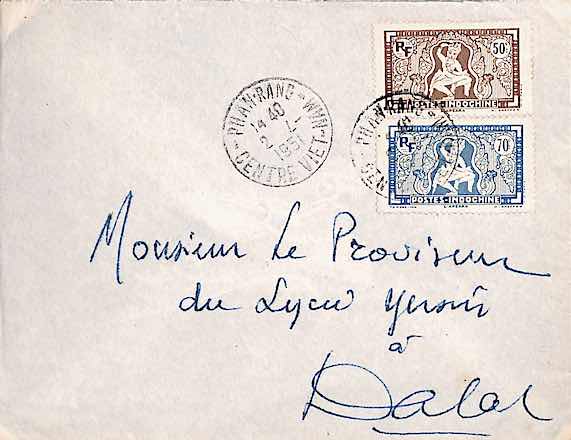 RF 50c
POSTES-INDOCHINE
RF 70c
POSTES-INDOCHINE
PHANRANG
14 40
2 - 1
1951
CENTRE VIET
PHANRANG
Monsieur Le Proviseur
du Lycée Yersin
à
Dalat